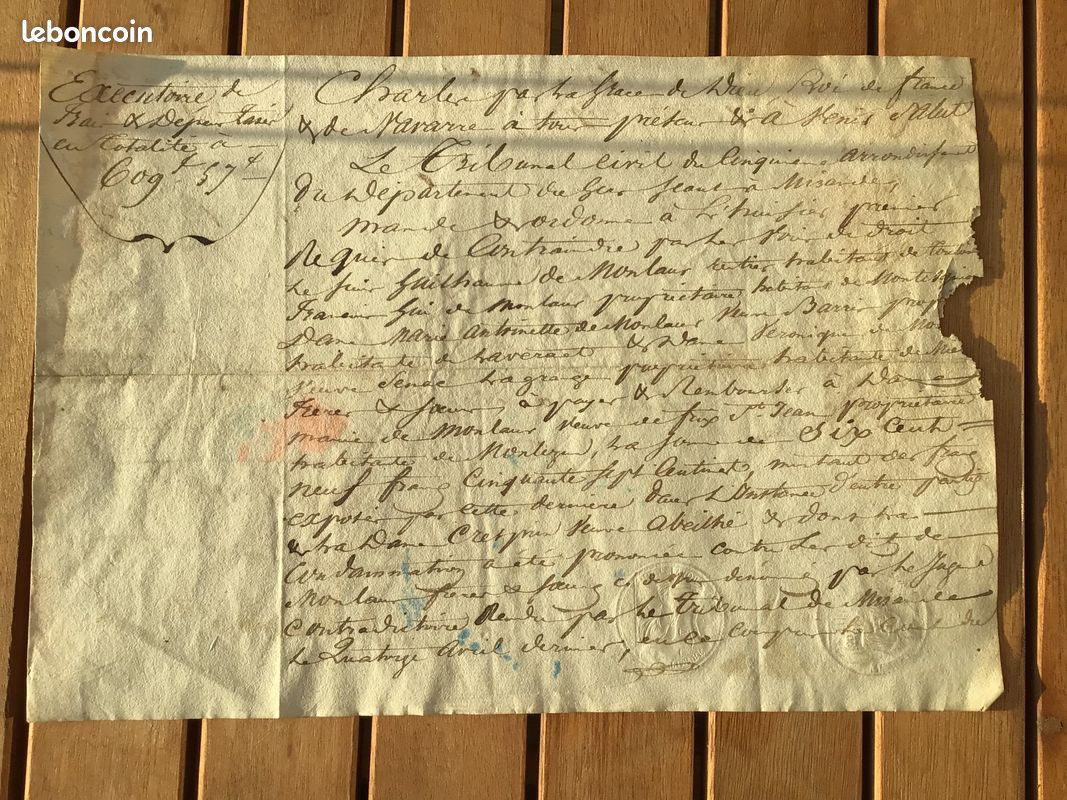 leboncoin
Exécutoire de
Frais & Depens taxés
en totalité à
609 f 57 c
Charles par la Grace de Dieu Roi de france
& de Navarre à tous présens & à Venir Salut
Le Tribunal Civil du Cinquieme arrondissement
du département du Gers séant à Mirande,
mande & ordonne à L'huissier premier
Requis de Contraindre par les Voies de droit
Le sieur Guilhaume de Monlaur rentier habitant de
francois Gui de Monlaur propriétaire habitant de
Dame Marie Antoinette de Monlaur Veuve Barris
habitante de Laveraet & Dame Véronique de
Veuve Senac Lagrange propriétaire habitante de
frerer & sœurs, à payer & Rembourser à Dame
marie de Monlaur Veuve de St. Jean propriétaire
habitante de Monlezun, la somme de Six Cent
neuf francs Cinquante Sept Centimes, montant des frais
exposés par cette derniere dans L'Instance d'entre parties
& La Dame Crespin Veuve Abeilhé & dont la
Condamnation a été prononcée contre Les dits de
Monlaur freres & sœurs par le Juge
Contradictoire Rendu par Le Tribunal de Mirande
Le Quatorze Avril dernier, en ce compris